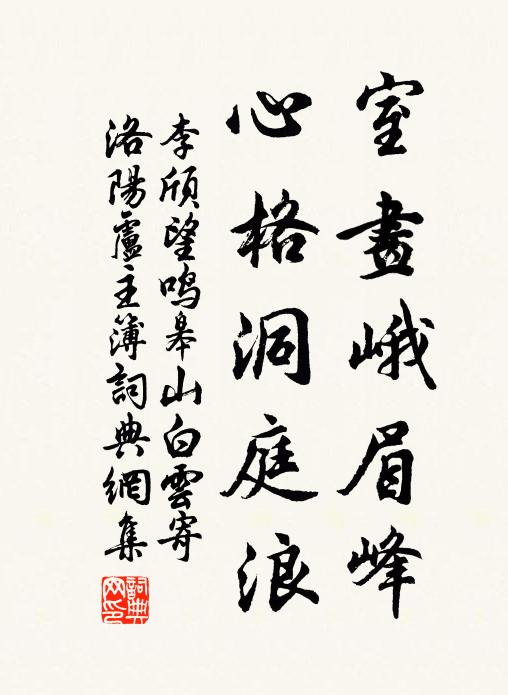 室畫峨眉峰
心格洞庭浪
李頎望鳴皋山白雲寄
洛陽盧主簿詞典網集
詞典
网印